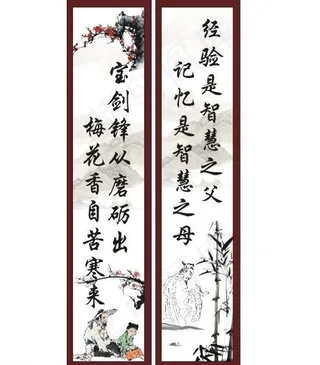 经验是智慧之父
记忆是智慧之母
宝剑锋从磨砺出
梅花香自苦寒来